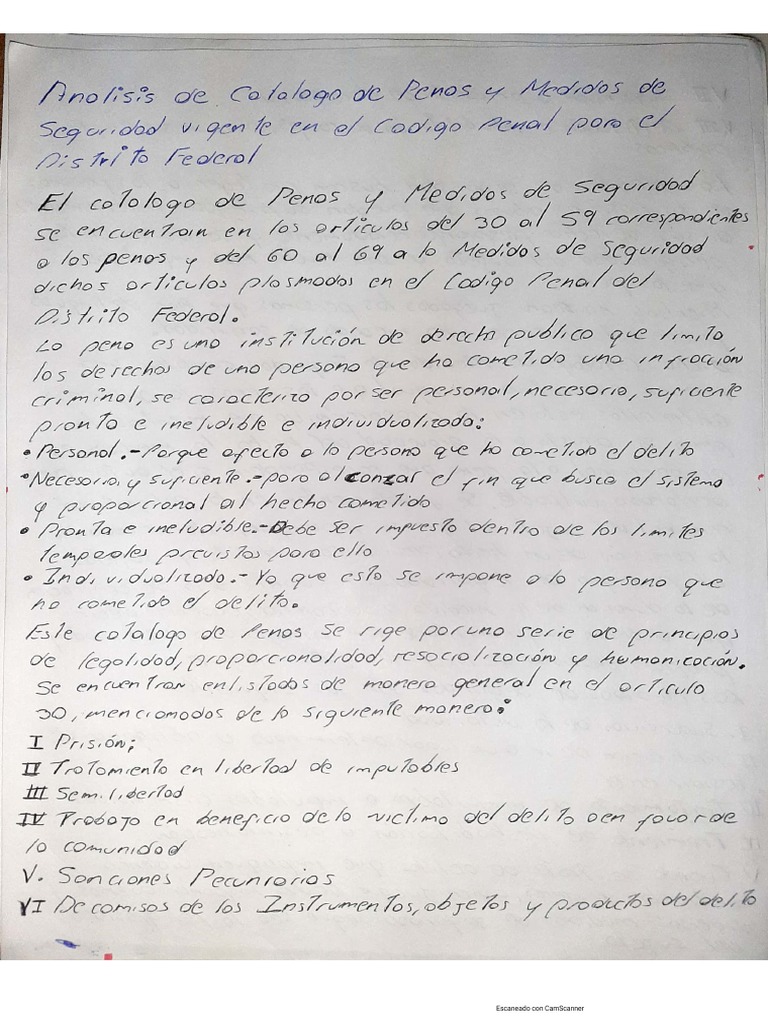 Analisis de Catalogo de Penas y Medidas de
Seguridad vigente en el Codigo Penal para el
Distrito Federal
El catalogo de Penas y Medidas de Seguridad
se encuentran en los articulos del 30 al 59 correspondientes
a las penas y del 60 al 69 a la Medidas de Seguridad
dichos articulos plasmados en el Codigo Penal del
Distrito Federal.
La pena es una institución de derecho publico que limita
los derechos de una persona que ha cometido una infracción
criminal, se caracteriza por ser personal, necesaria, suficiente
pronta e ineludible e individualizada:
• Personal.- Porque afecta a la persona que ha cometido el delito
• Necesaria y suficiente.- para alcanzar el fin que busca el sistema
y proporcional al hecho cometido
• Pronta e ineludible.- Debe ser impuesta dentro de los limites
temporales previstos para ello
• Individualizada.- Ya que esta se impone a la persona que
ha cometido el delito.
Este catalogo de Penas se rige por una serie de principios
de legalidad, proporcionalidad, resocialización y humanicación.
Se encuentran enlistados de manera general en el articulo
30, mencionados de la siguiente manera:
I Prisión;
II Tratamiento en libertad de imputables
III Semilibertad
IV Trabajo en beneficio de la victima del delito o en favor de
la comunidad
V. Sanciones Pecuniarias
VI Decomisos de los Instrumentos, objetos y productos del delito
Escaneado con CamScanner